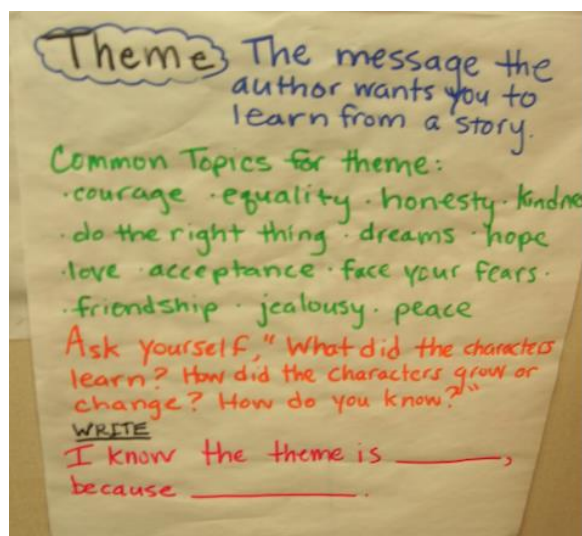 Theme The message the
author wants you to
learn from a story.
Common Topics for theme:
·courage ·equality ·honesty ·kindne
·do the right thing ·dreams ·hope
·love ·acceptance ·face your fears·
·friendship ·jealousy· peace
Ask yourself, "What did the characters
learn? How did the characters grow or
change? How do you know?"
WRITE
I know the theme is ________,
because ____________.